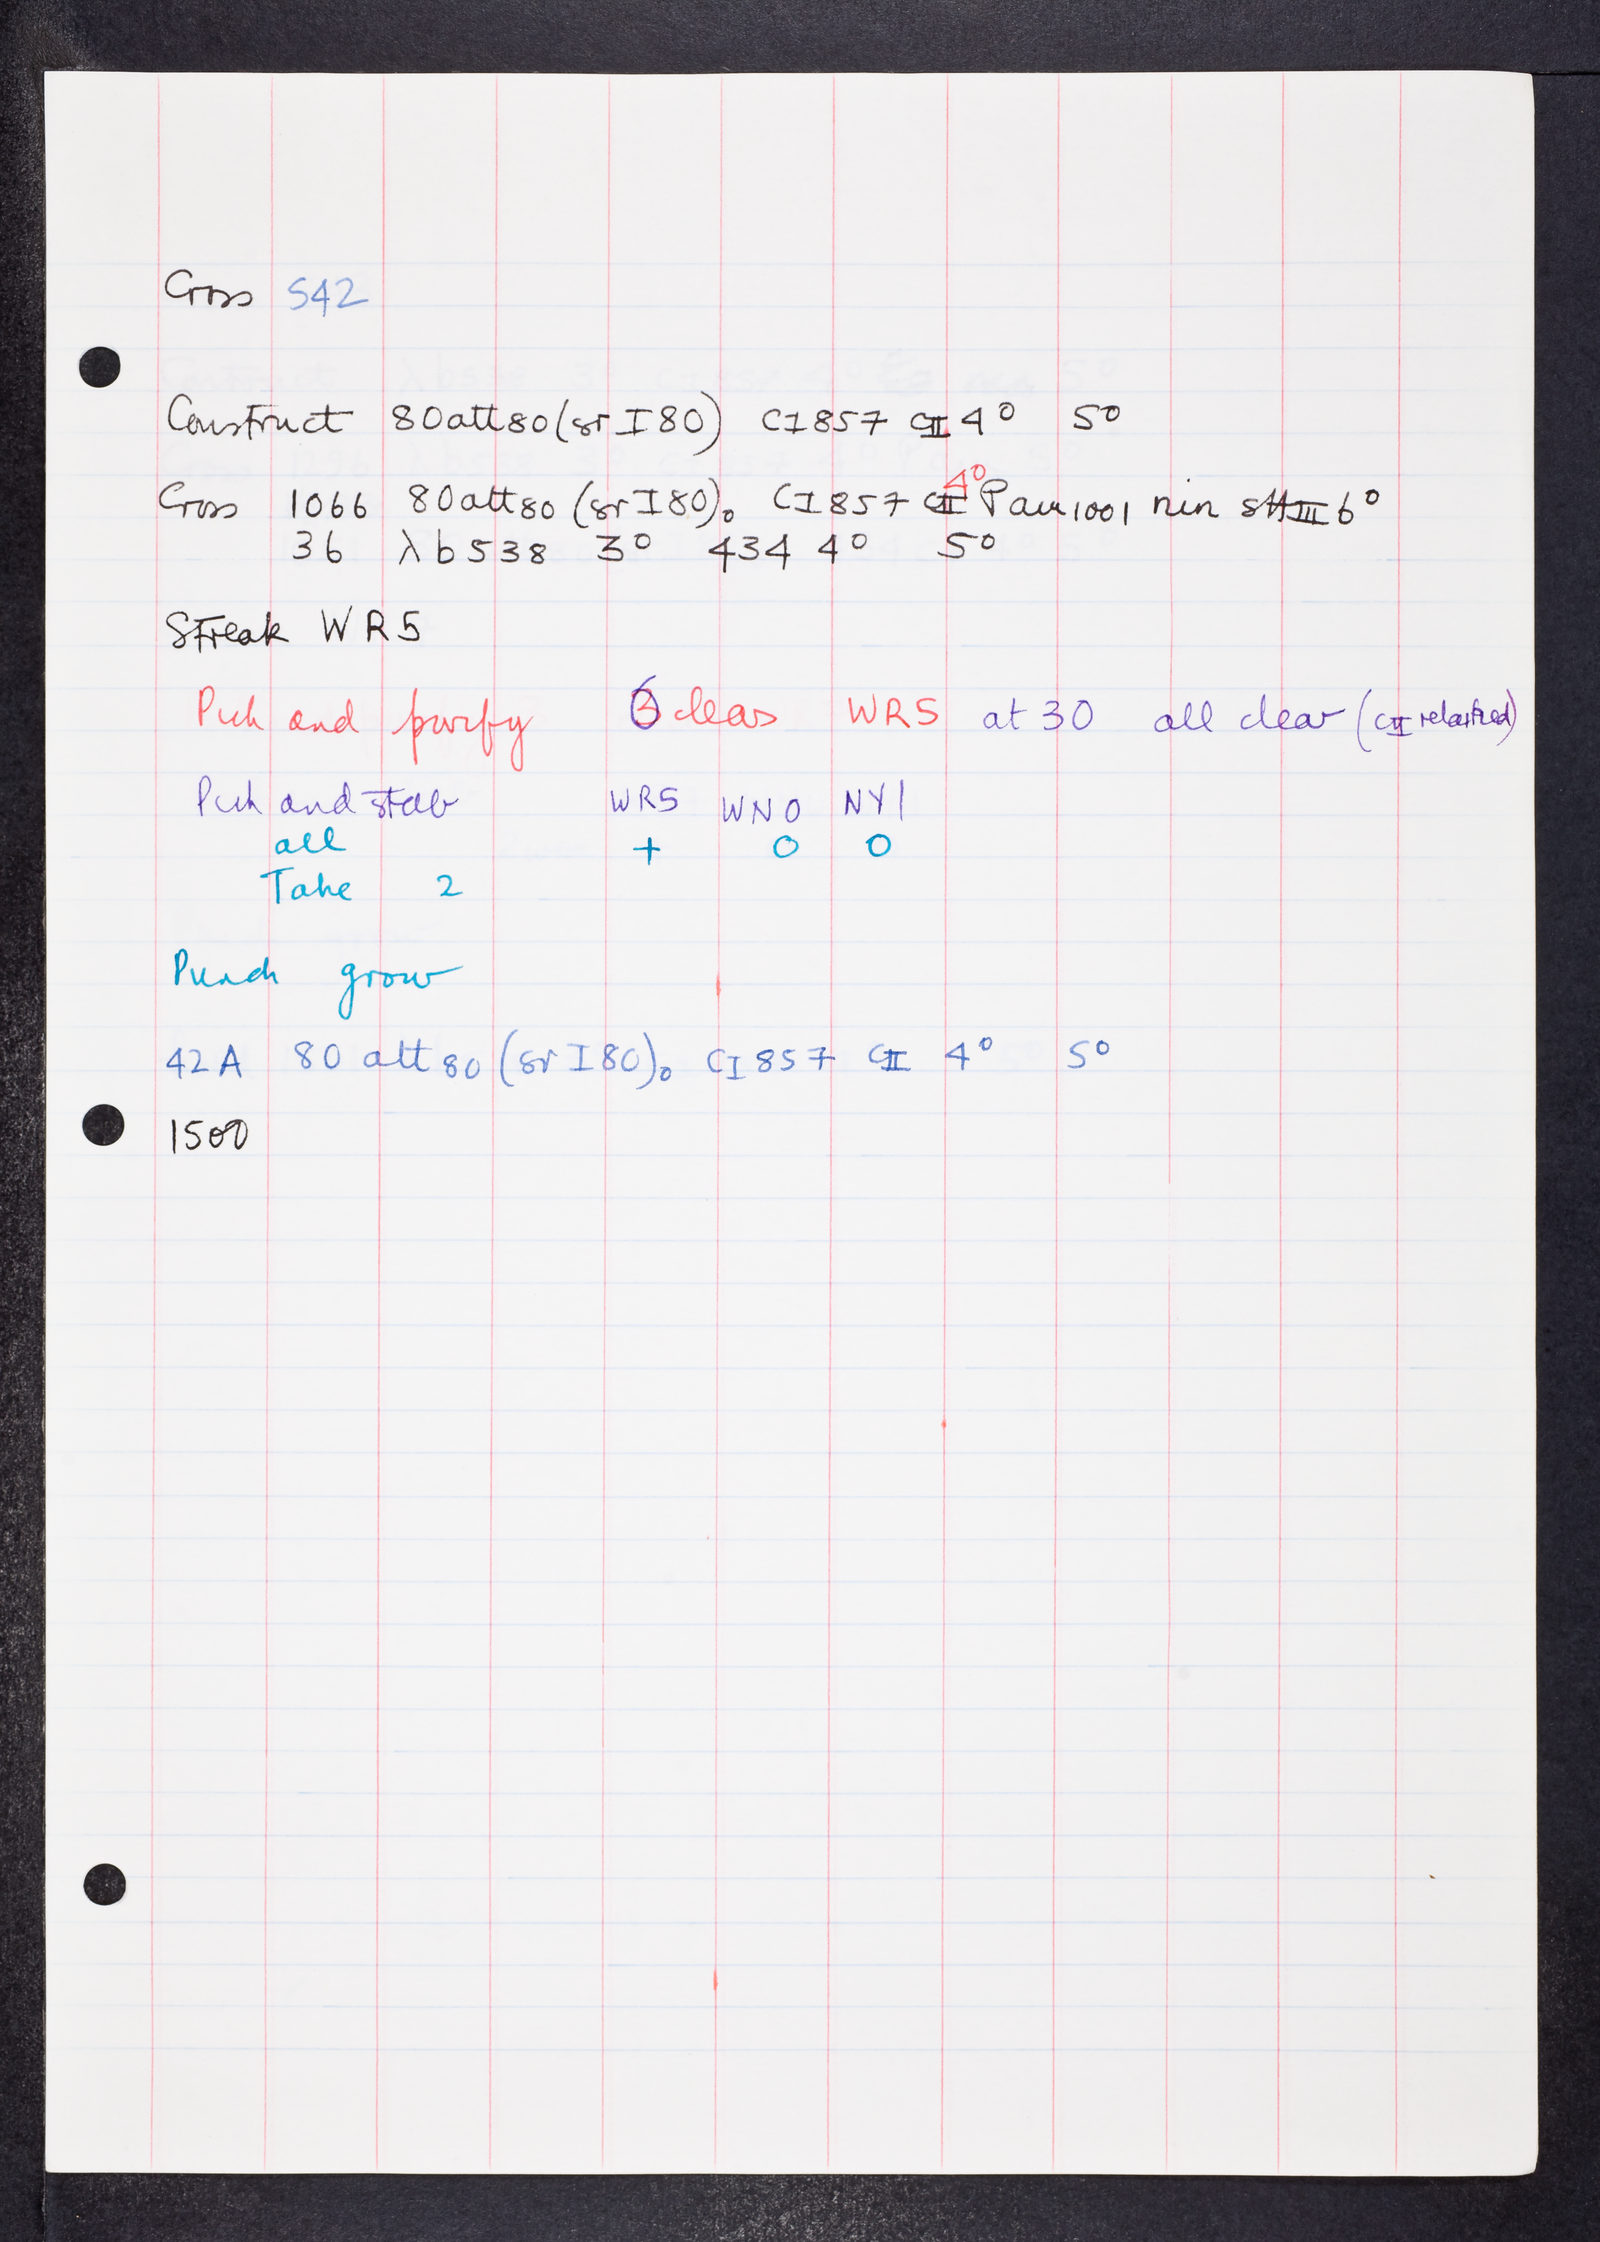 Cross S42
Construct 80att80(srI80) CI857 CII 4° 5°
4°
Cross 1066 80att80 (srI80)o CI857 CII Pam1001 nin sHIII6°
36 λb538 3° 434 4° 5°
Streak WR5
Pick and purify 6 clears WR5 at 30 all clear (CII relarted)
Pick and stab WR5 WNO NY1
all + O O
Take 2
Punch grow
42A 80 att80 (srI80)o CI857 CII 4° 5°
1500